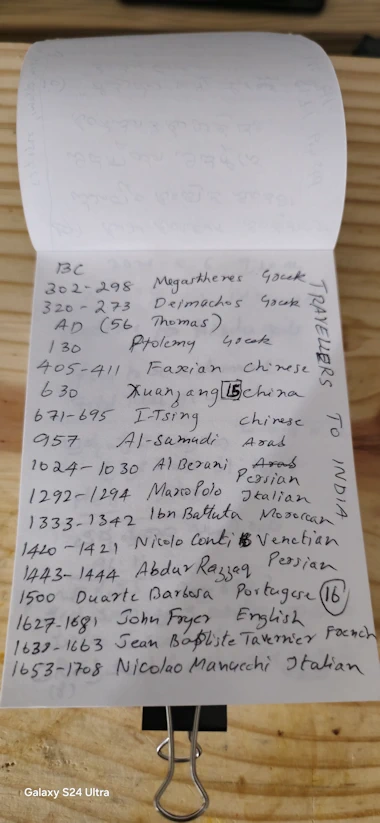 BC
302-298 Megastheres Greek
320-273 Deimachos Greek
AD (56 Thomas)
130 Ptolemy Greek
405-411 Faxian Chinese
630 Xuanzang 15 China
671-695 I-Tsing Chinese
957 Al-samudi Arab
1024-1030 Al Berani Arab
Persian
1292-1294 Marco Polo Italian
1333-1342 Ibn Battuta Moroccan
1420-1421 Nicolo Conti Venetian
1443-1444 Abdur Razzaq Persian
1500 Duarte Barbosa Portugese 16
1627-1681 John Fryer English
1638-1663 Jean Baptiste Tavernier French
1653-1708 Nicolao Manucchi Italian
TRAVELLERS TO INDIA
Galaxy S24 Ultra